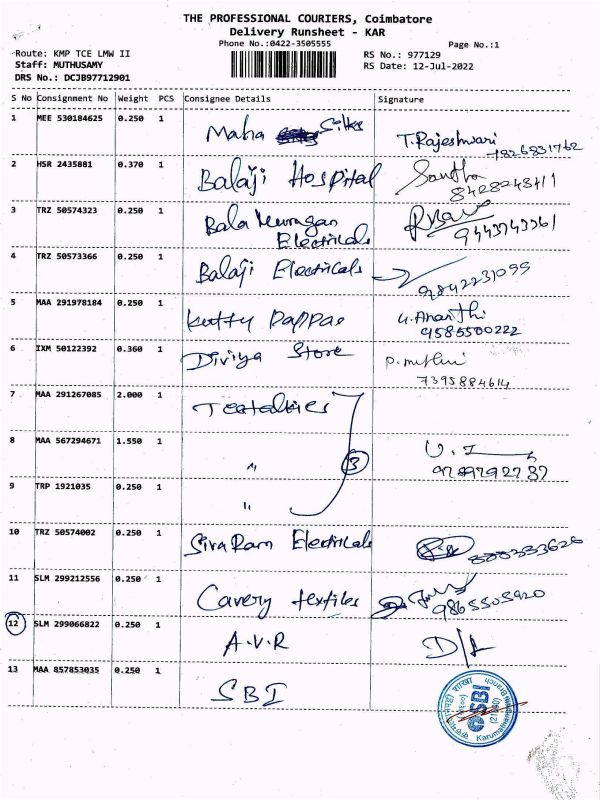 THE PROFESSIONAL COURIERS, Coimbatore
Delivery Runsheet - KAR
Phone No.:0422-3505555 Page No.:1
Route: KMP TCE LMW II RS No.: 977129
Staff: MUTHUSAMY RS Date: 12-Jul-2022
DRS No.: DCJB97712901
S No Consignment No Weight PCS Consignee Details Signature
1 MEE 530184625 0.250 1 Maha Silks T. Rajeshwari
2 HSR 2435881 0.370 1 Balaji Hospital Santha
8428243411
3 TRZ 50574323 0.250 1 Bala Murugan
Electricals 9443743361
4 TRZ 50573366 0.250 1 Balaji Electricals 9842231099
5 MAA 291978184 0.250 1 Kutty Pappas U. Ananthi
9585500222
6 IXM 50122392 0.360 1 Diviya Store P.
7395884614
7 MAA 291267085 2.000 1
8 MAA 567294671 1.550 1 " 3
9789792737
9 TRP 1921035 0.250 1 "
10 TRZ 50574002 0.250 1 Siva Ram Electricals
11 SLM 299212556 0.250 1 Cavery textiles
9865505920
12 SLM 299066822 0.250 1 A.V.R D/L
13 MAA 857853035 0.250 1 SBI
शाखा
SBI
Branch